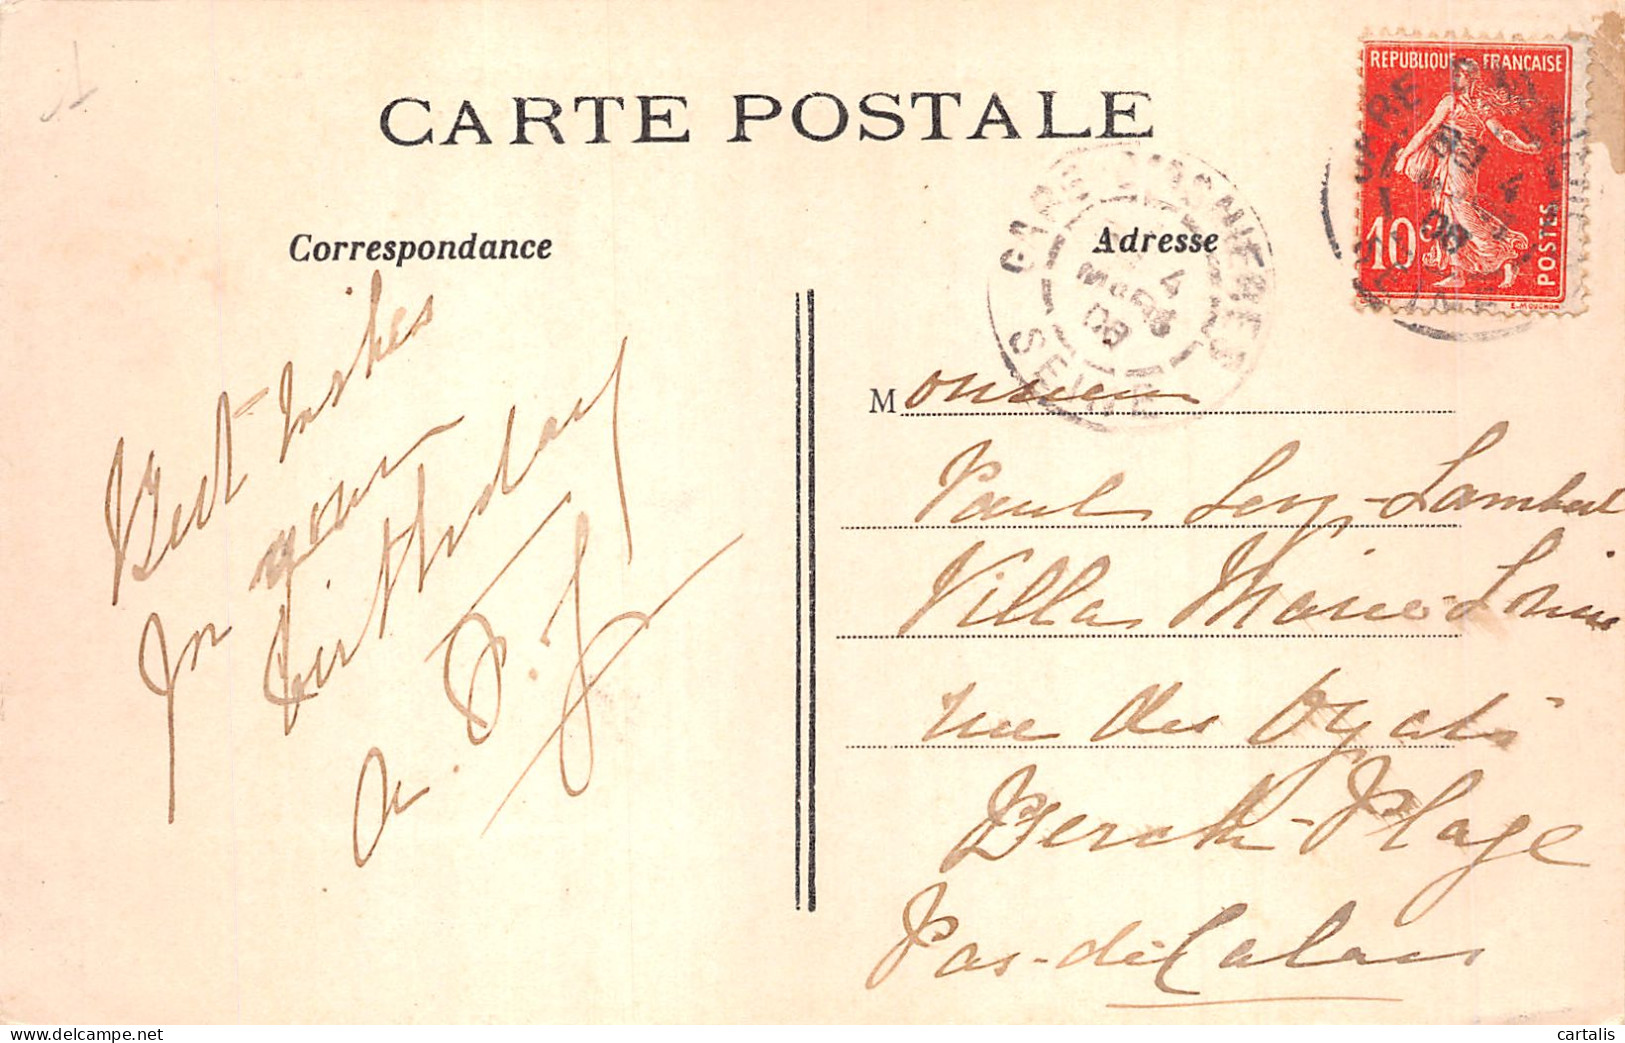 CARTE POSTALE
Correspondance
Adresse
REPUBLIQUE FRANÇAISE
10c
POSTES
E. MOUCHON
GARE D'ASNIERES
4
08
SEINE
Best wishes
for
your
birthday
Monsieur
Paul Levy-Lambert
Villa Marie-Louise
rue des Oyats
Berck-Plage
Pas-de-Calais
delcampe.net
cartalis